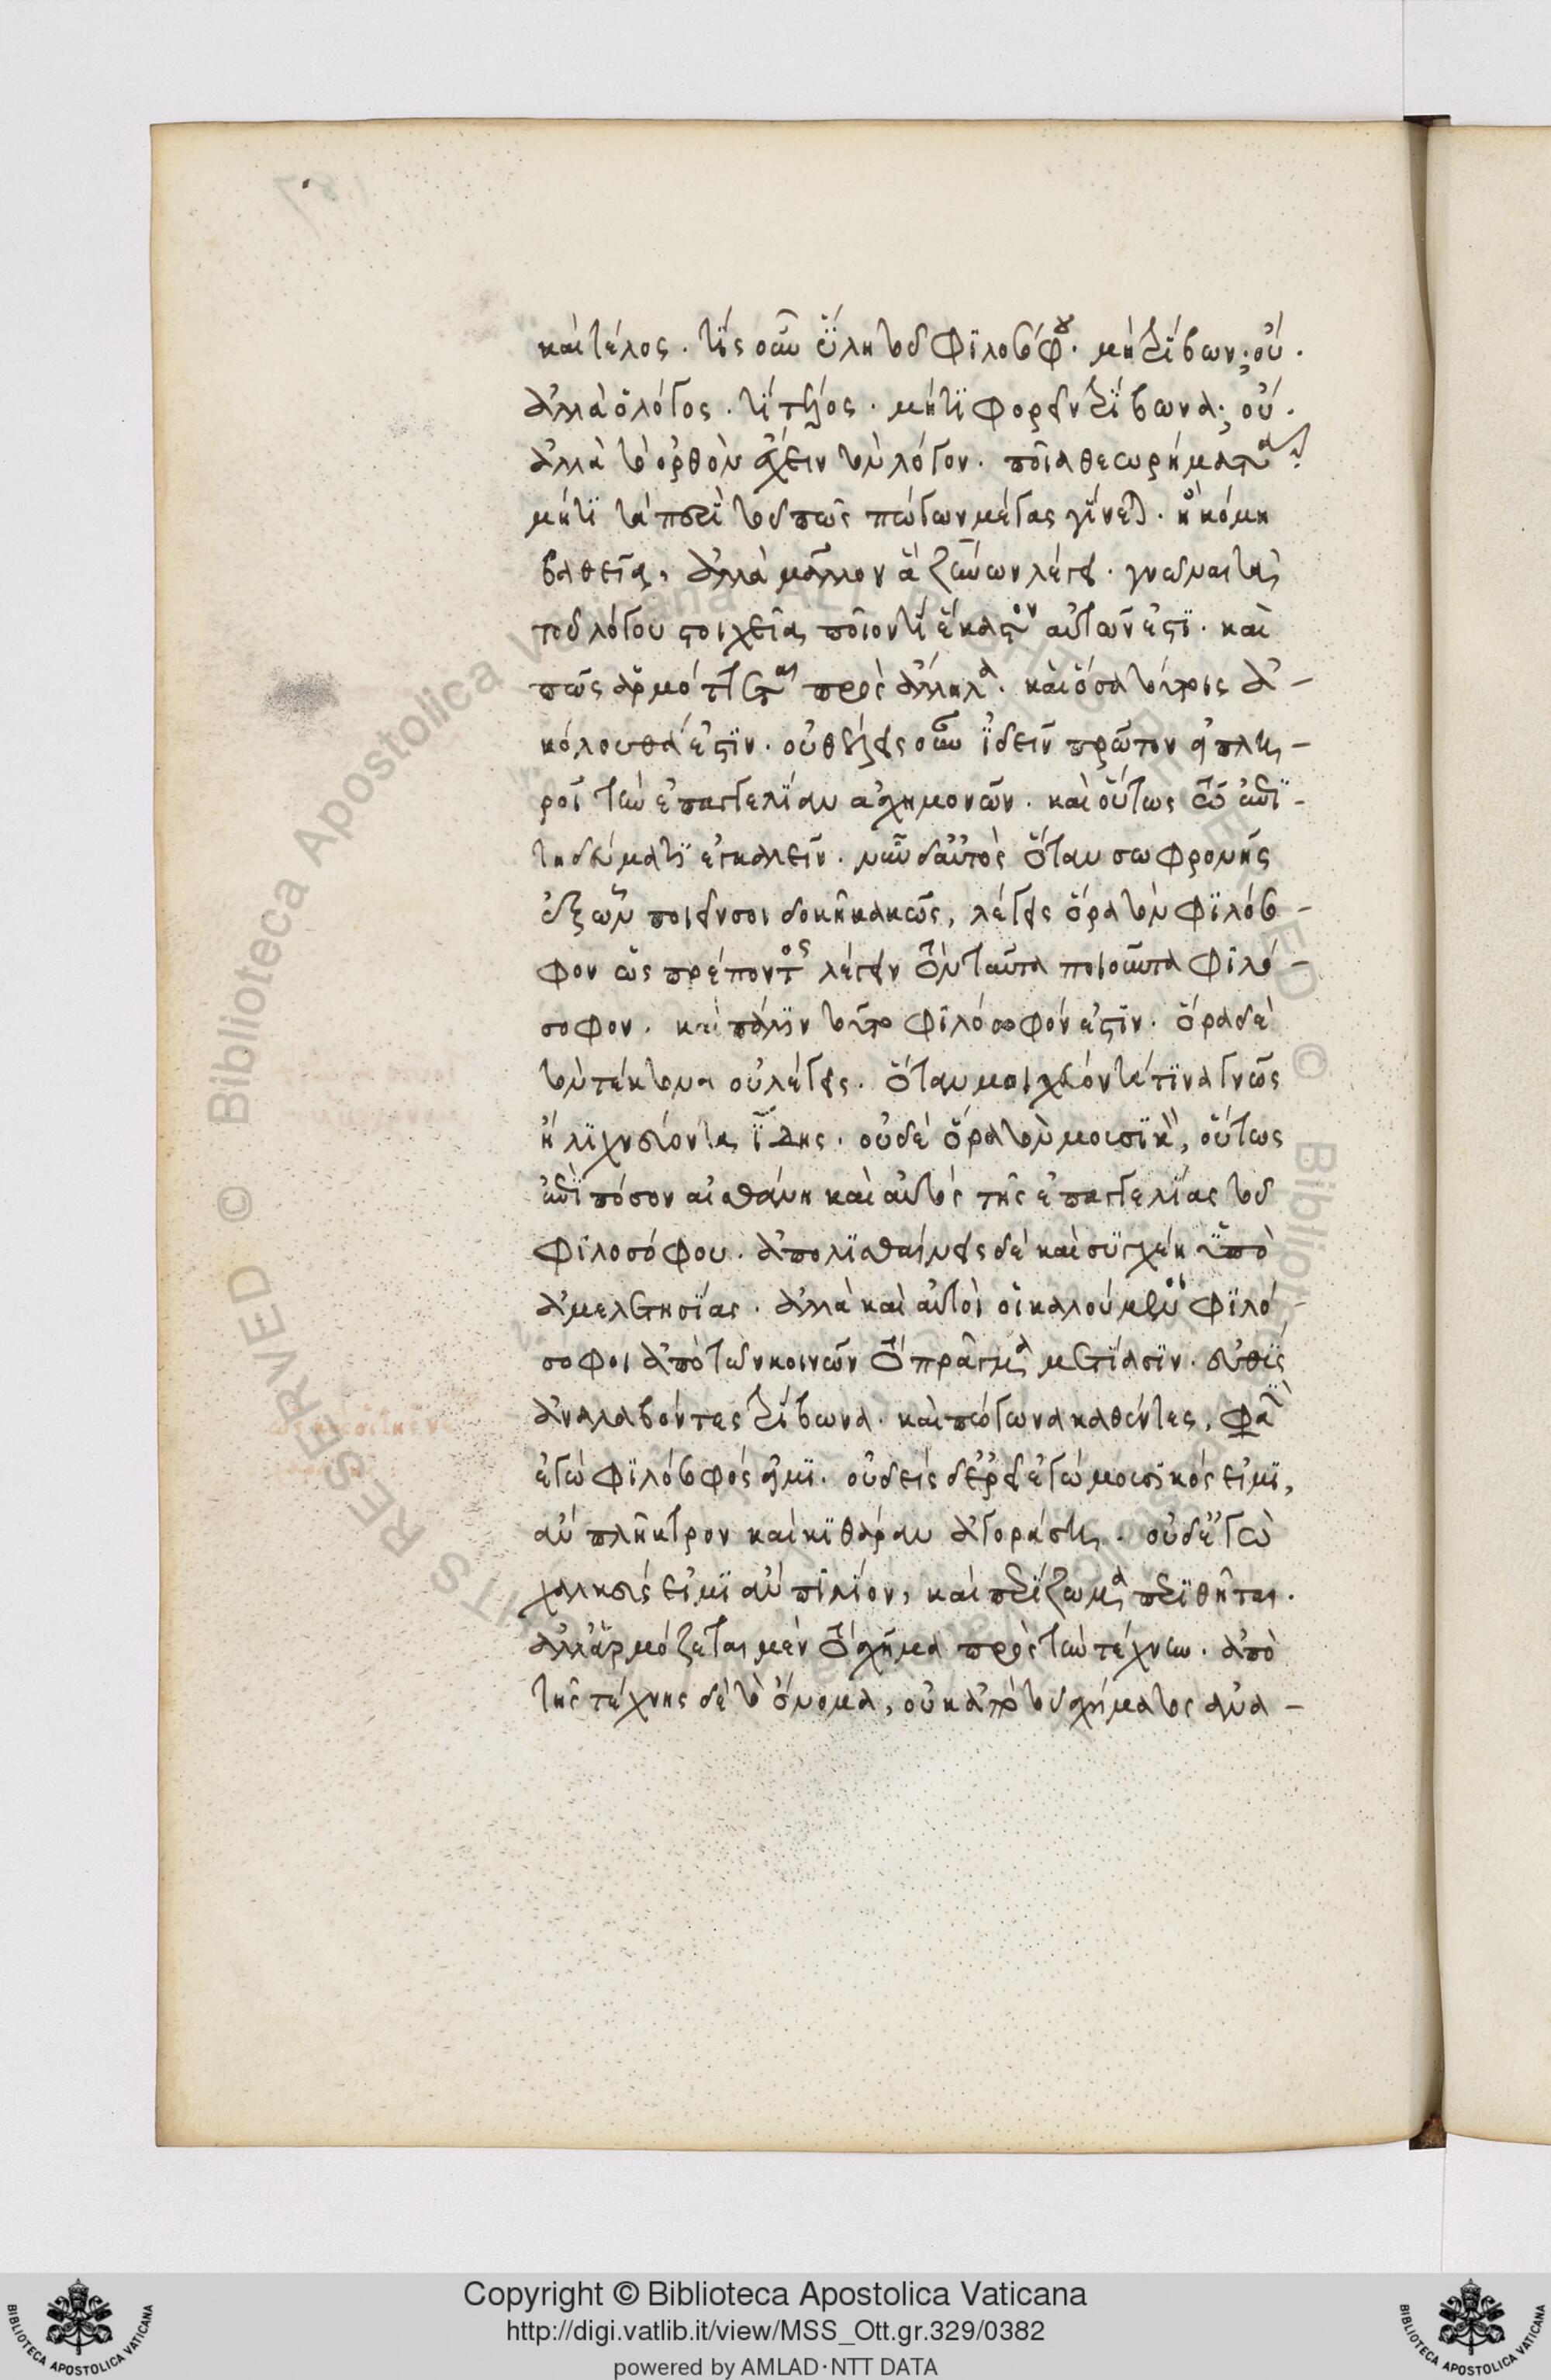 καὶ τέλος. τίς οὖν ὕλη τοῦ φιλοσόφου. μὴ τρίβων; οὔ.
ἀλλὰ ὁ λόγος. τί τέλος. μήτι φορεῖν τρίβωνα; οὔ.
ἀλλὰ τὸ ὀρθὸν ἔχειν τὸν λόγον. ποῖα θεωρήματα
μήτι τὰ περὶ τοῦ πῶς πώγων μέγας γίνεται. ἢ κόμη
βαθεῖα, ἀλλὰ μᾶλλον ἃ ζήνων λέγει. γνῶναι τὰ
τοῦ λόγου στοιχεῖα, ποῖόν τι ἕκαστον αὐτῶν ἐστι. καὶ
πῶς ἁρμόττεται πρὸς ἄλληλα. καὶ ὅσα τούτοις ἀ-
κόλουθά ἐστιν. οὐ θέλεις οὖν ἰδεῖν πρῶτον εἰ πλη-
ροῖ τὴν ἐπαγγελίαν ἀσχημονῶν. καὶ οὕτως τῷ ἐπι-
τηδεύματι ἐγκαλεῖν. νῦν δ' αὐτὸς ὅταν σωφρονῇς
ἐξ ὧν ποιεῖν σοι δοκῇ κακῶς, λέγεις ὅρα τὸν φιλόσο-
φον ὡς πρέποντος λέγειν τὸν ταῦτα ποιοῦντα φιλό-
σοφον. καὶ πάλιν τοῦτο φιλόσοφόν ἐστιν. ὅρα δὲ
τὸν τέκτονα οὐ λέγεις. ὅταν μοιχεύοντά τινα γνῷς
ἢ λιχνεύοντα ἴδῃς. οὐδὲ ὅρα τὸν μουσικὸν, οὕτως
ἐπὶ πόσον αἰσθάνῃ καὶ αὐτὸς τῆς ἐπαγγελίας τοῦ
φιλοσόφου. ἀπολισθαίνεις δὲ καὶ συγχέῃ ὑπὸ
ἀμελετησίας. ἀλλὰ καὶ αὐτοὶ οἱ καλούμενοι φιλό-
σοφοι ἀπὸ τῶν κοινῶν τὸ πρᾶγμα μετίασιν. εὐθὺς
ἀναλαβόντες τρίβωνα. καὶ πώγωνα καθέντες, φασὶ
ἐγὼ φιλόσοφός εἰμι. οὐδεὶς δ' ἐρεῖ ἐγὼ μουσικός εἰμι,
ἂν πλῆκτρον καὶ κιθάραν ἀγοράσῃ. οὐδ' ἐγὼ
χαλκεύς εἰμι ἂν πιλίον, καὶ περίζωμα περιθῆται.
ἀλλ' ἁρμόζεται μὲν τὸ σχῆμα πρὸς τὴν τέχνην. ἀπὸ
τῆς τέχνης δὲ τὸ ὄνομα, οὐκ ἀπὸ τοῦ σχήματος ἀνα-
Copyright © Biblioteca Apostolica Vaticana
http://digi.vatlib.it/view/MSS_Ott.gr.329/0382
powered by AMLAD·NTT DATA